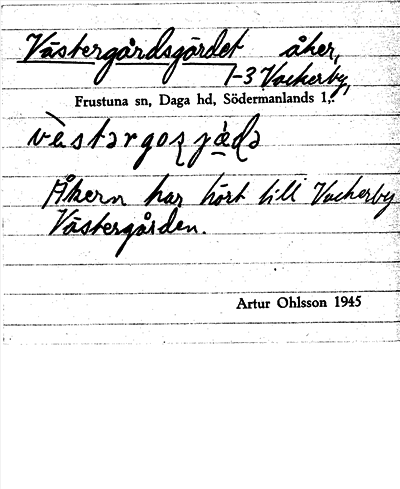 Västergårdsgärdet åker,
1-3 Vackerby,
Frustuna sn, Daga hd, Södermanlands l,:
Åkern har hört till Vackerby
Västergården.
Artur Ohlsson 1945